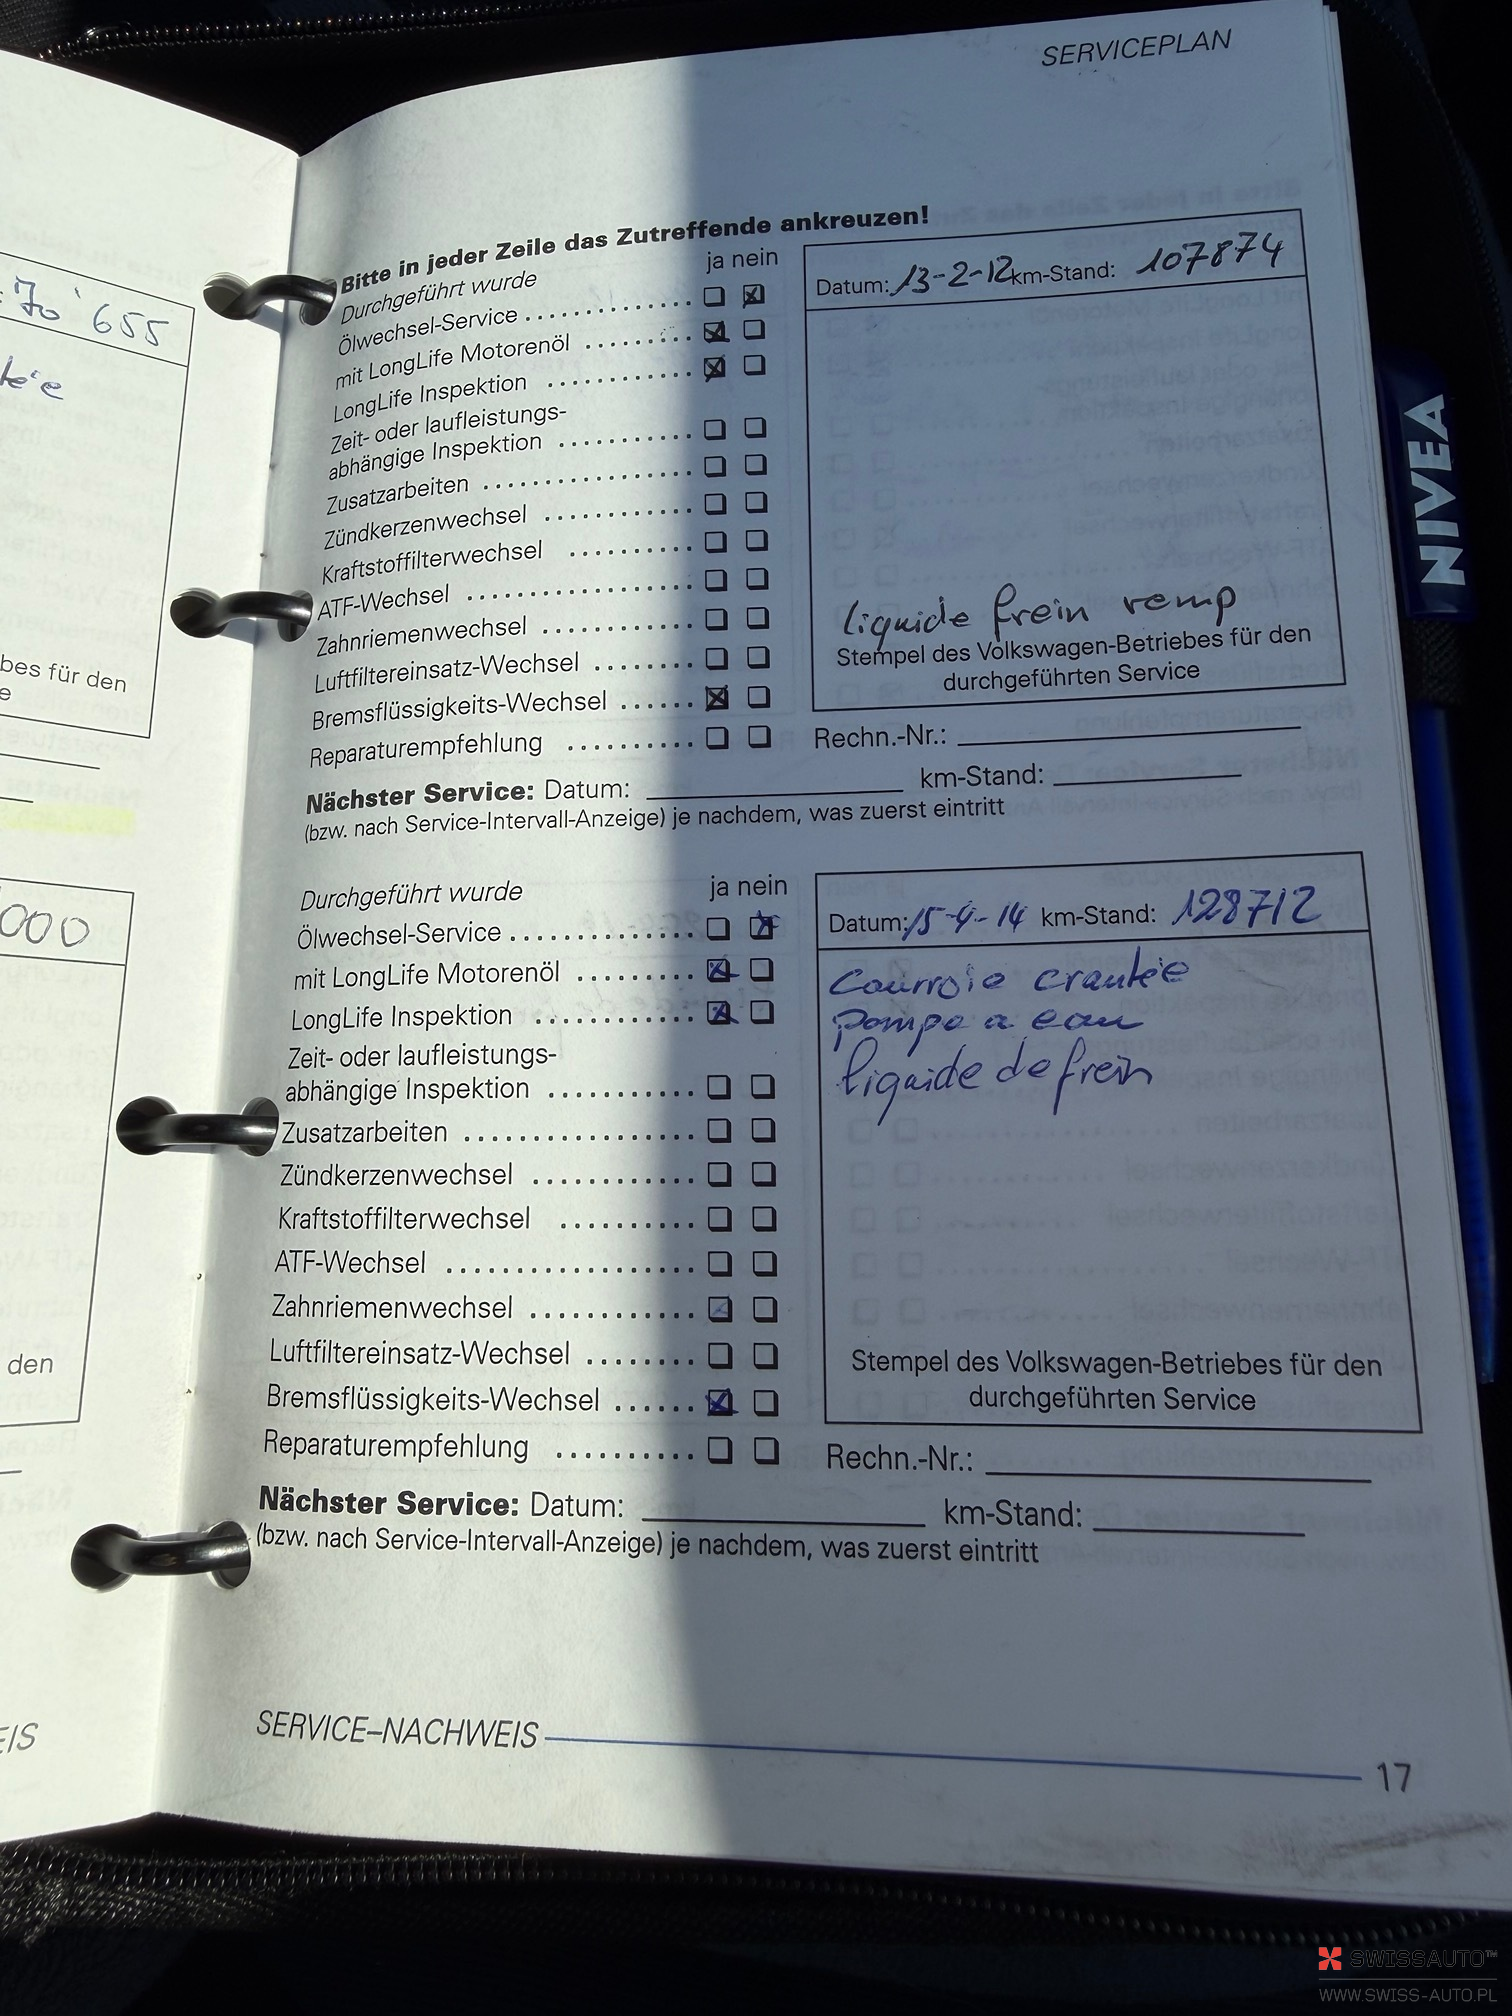 SERVICEPLAN
70'655
Bitte in jeder Zeile das Zutreffende ankreuzen!
Durchgeführt wurde ja nein
Ölwechsel-Service
mit LongLife Motorenöl
LongLife Inspektion
Zeit- oder laufleistungs-
abhängige Inspektion
Zusatzarbeiten
Zündkerzenwechsel
Kraftstoffilterwechsel
ATF-Wechsel
Zahnriemenwechsel
Luftfiltereinsatz-Wechsel
Bremsflüssigkeits-Wechsel
Reparaturempfehlung
Datum: 13-2-12 km-Stand: 107874
liquide frein remp
Stempel des Volkswagen-Betriebes für den
durchgeführten Service
Rechn.-Nr.:
Nächster Service: Datum: km-Stand:
(bzw. nach Service-Intervall-Anzeige) je nachdem, was zuerst eintritt
Durchgeführt wurde ja nein
Ölwechsel-Service
mit LongLife Motorenöl
LongLife Inspektion
Zeit- oder laufleistungs-
abhängige Inspektion
Zusatzarbeiten
Zündkerzenwechsel
Kraftstoffilterwechsel
ATF-Wechsel
Zahnriemenwechsel
Luftfiltereinsatz-Wechsel
Bremsflüssigkeits-Wechsel
Reparaturempfehlung
Datum: 15-4-14 km-Stand: 128712
Courroie crantée
pompe a eau
liquide de frein
Stempel des Volkswagen-Betriebes für den
durchgeführten Service
Rechn.-Nr.:
Nächster Service: Datum: km-Stand:
(bzw. nach Service-Intervall-Anzeige) je nachdem, was zuerst eintritt
SERVICE–NACHWEIS
17
für den
000
den
NIVEA
SWISSAUTO™
WWW.SWISS-AUTO.PL